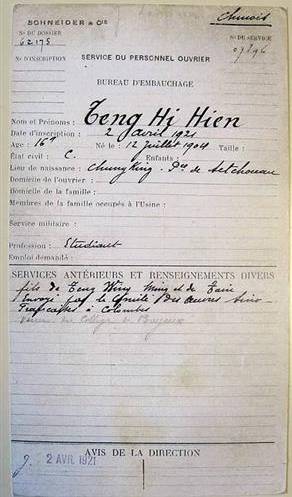 Chinois
SCHNEIDER & Cie
No DU DOSSIER
62175
No DE SERVICE
07396
No D'INSCRIPTION
SERVICE DU PERSONNEL OUVRIER
BUREAU D'EMBAUCHAGE
Nom et Prénoms : Teng Hi Hien
Date d'inscription : 2 avril 1921
Age : 16 a Né le : 12 juillet 1904 Taille :
État civil : C. Enfants :
Lieu de naissance : Chungking. Pce de Setchouan
Domicile de l'ouvrier :
Domicile de la famille :
Membres de la famille occupés à l'Usine :
Service militaire :
Profession : Etudiant
Emploi demandé :
SERVICES ANTÉRIEURS ET RENSEIGNEMENTS DIVERS
fils de Teng Wing Ming et de
Envoyé par le Comité des œuvres Sino-
Françaises à Colombes
Venu du Collège de
AVIS DE LA DIRECTION
2 AVRIL 1921